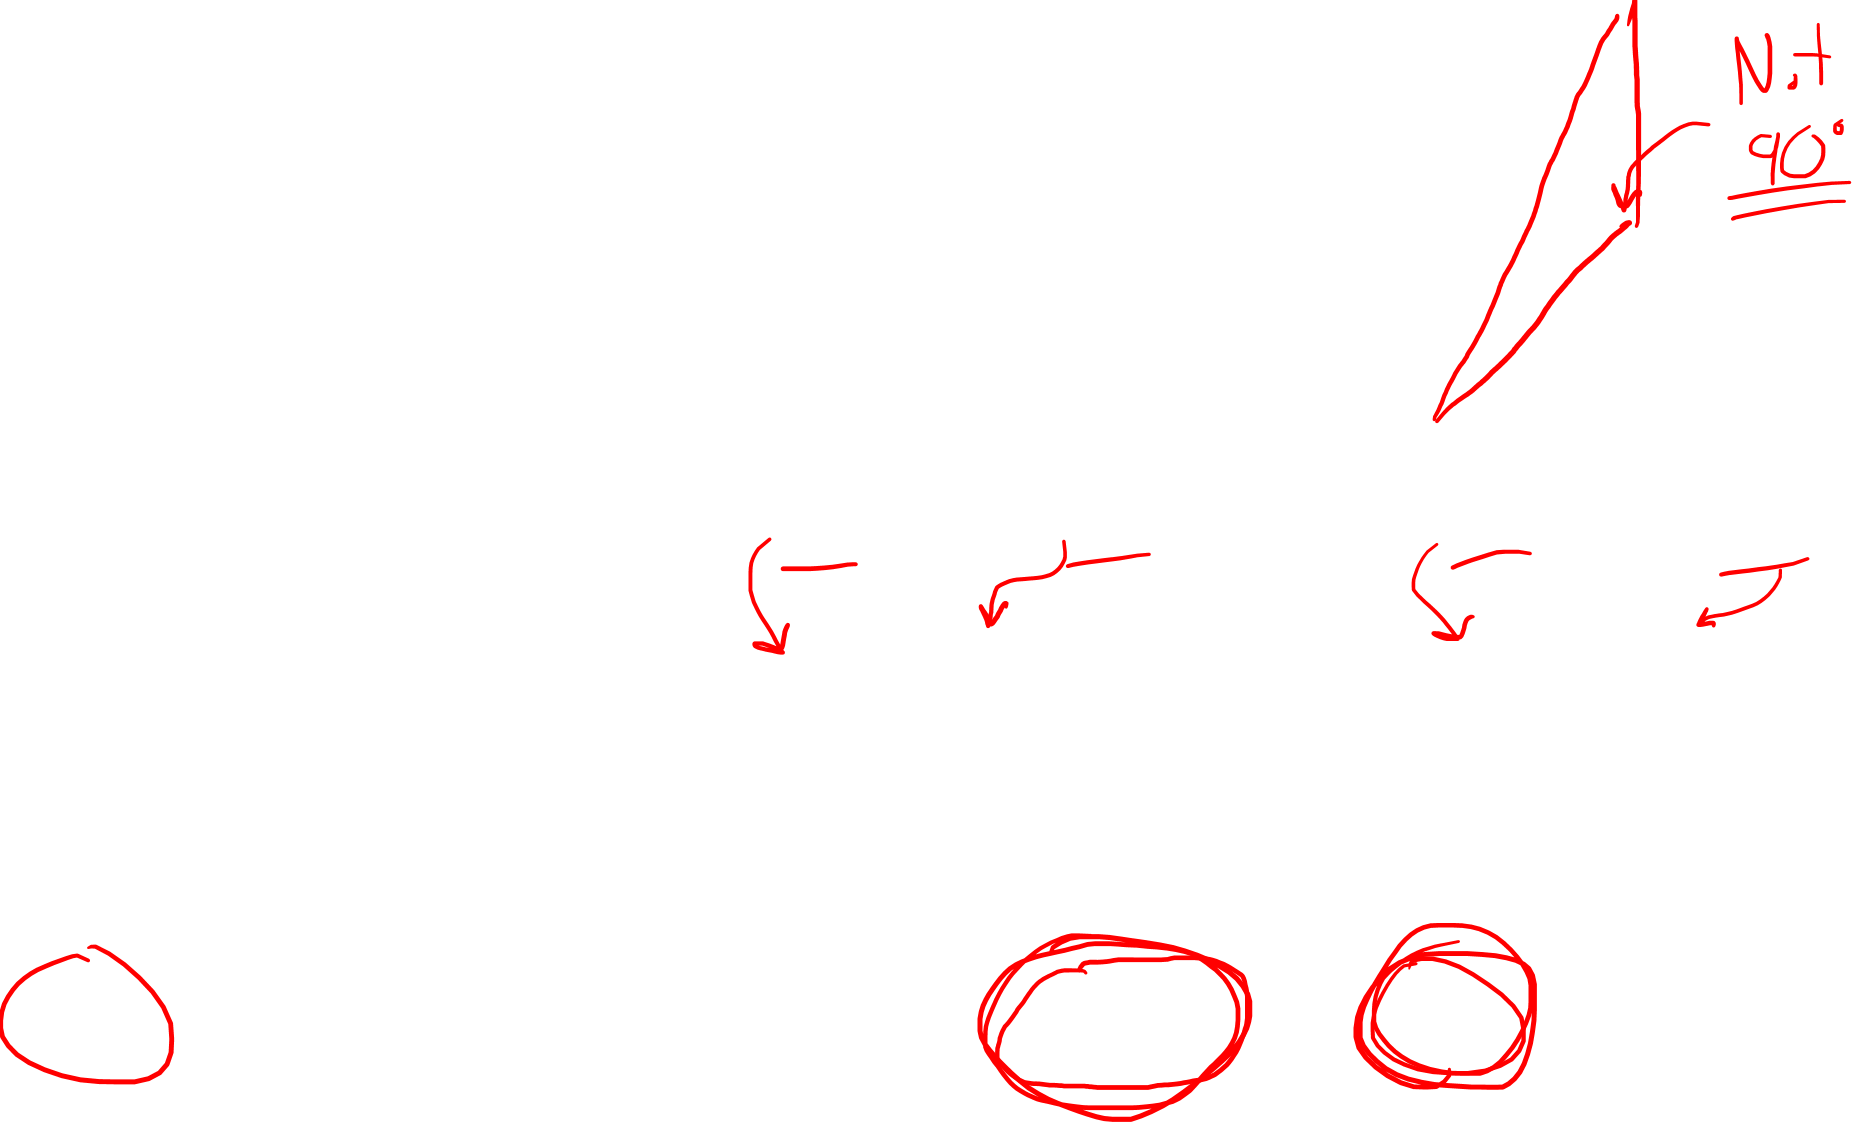 Not
90°